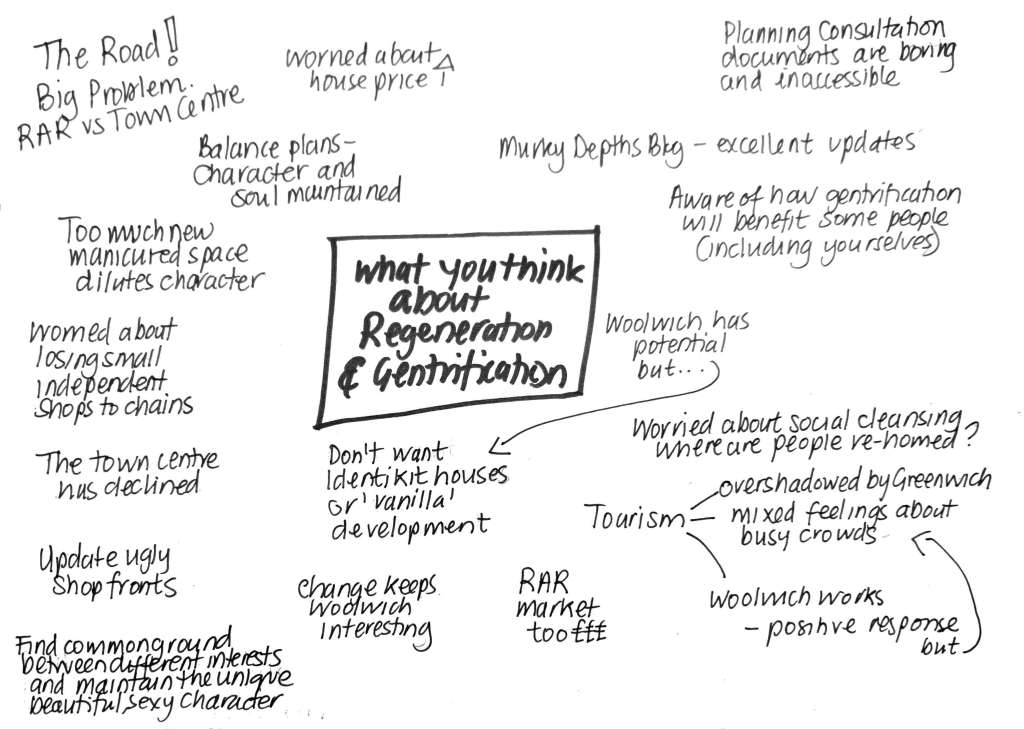 The Road!
Big Problem.
RAR vs Town Centre
worried about
house price ↑
Planning Consultation
documents are boring
and inaccessible
Balance plans –
Character and
soul maintained
Murky Depths Blog – excellent updates
Aware of how gentrification
will benefit some people
(including yourselves)
Too much new
manicured space
dilutes character
what you think
about
Regeneration
& Gentrification
Woolwich has
potential
but...
Worried about
losing small
independent
shops to chains
Worried about social cleansing
where are people re-homed?
The town centre
has declined
Don't want
Identikit houses
or 'vanilla'
development
Tourism
overshadowed by Greenwich
mixed feelings about
busy crowds
Woolwich works
– positive response
but
Update ugly
Shop fronts
Change keeps
Woolwich
interesting
RAR
market
too £££
Find common ground
between different interests
and maintain the unique
beautiful, sexy character